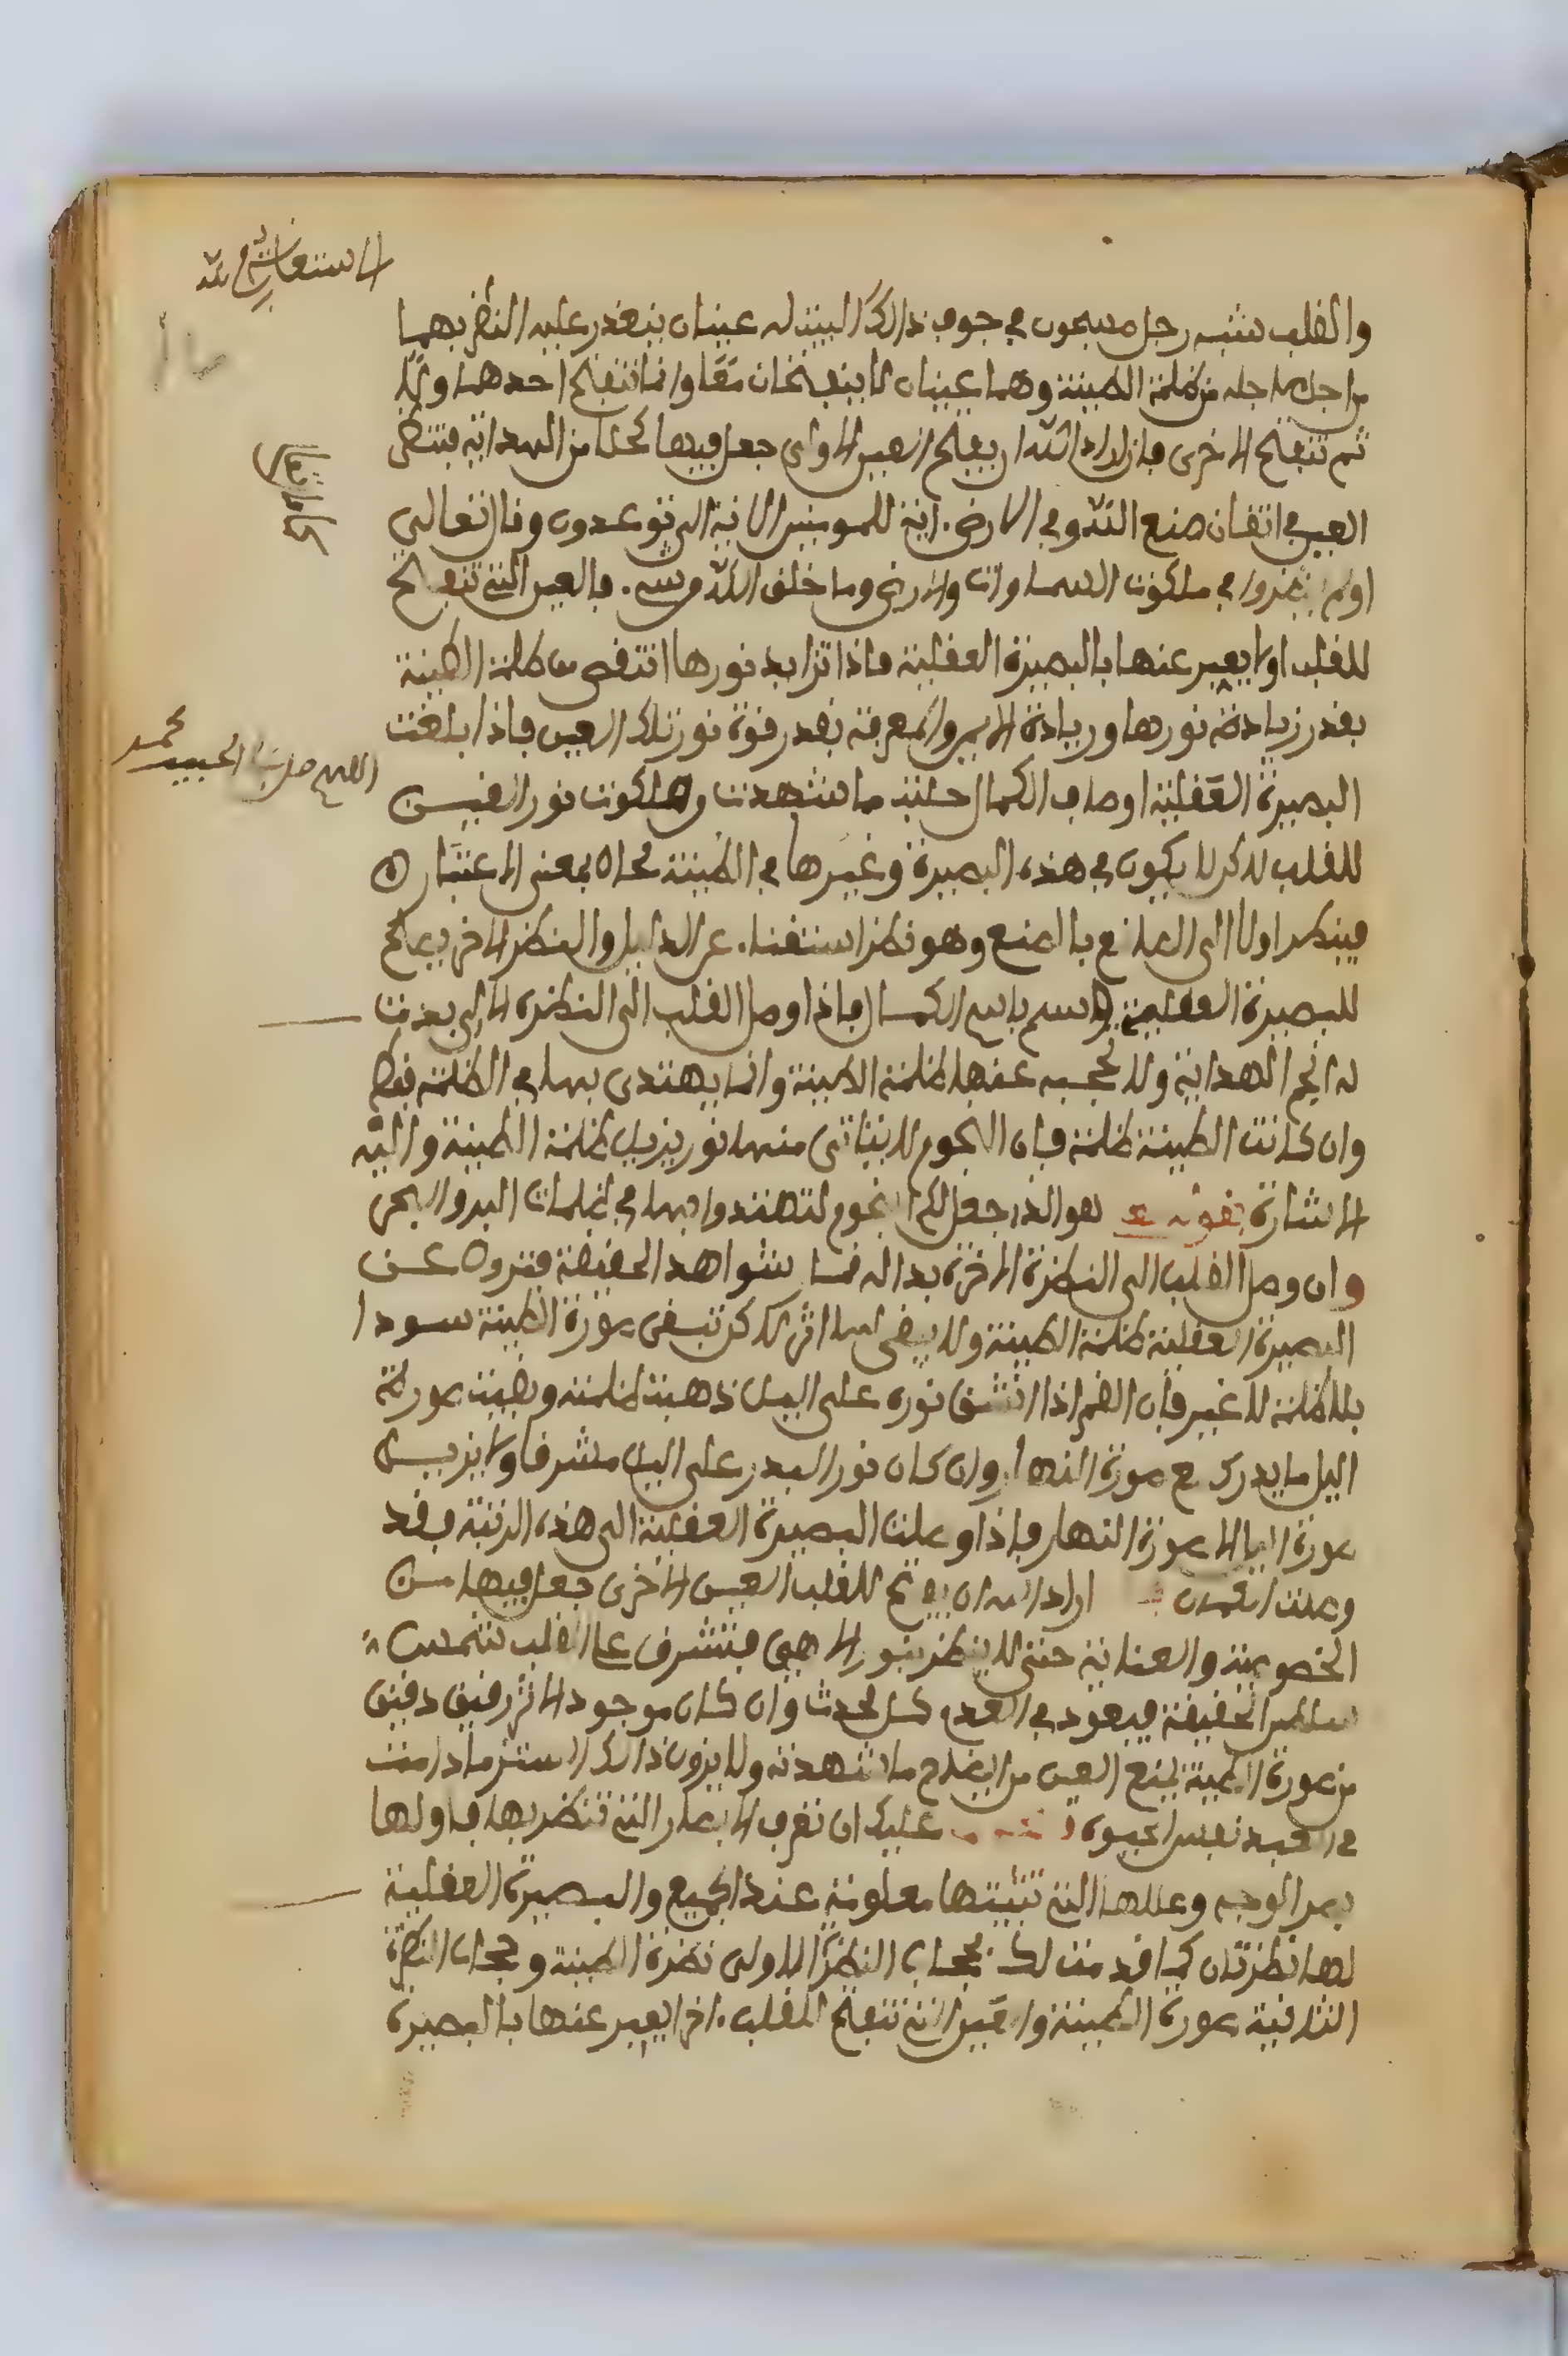 والقلب شبه رجل مسجون في جوف ذالك البيت له عينان يتعذر عليه النظر بهما
من اجل ما حله من ظلمة الطينة وهما عينان لا ينفتحان معا وانما تنفتح احدهما اولا
ثم تنفتح الاخرى فاذا اراد الله ان يفتح العين الاولى جعل فيها كحلا من الهداية فتنظر
العين في اتقان صنع الله وفي الارض اية للمومنين الاية التي توعدون وقال تعالى
اولم ينظروا في ملكوت السماوات والارض وما خلق الله من شيء فالعين التي تنفتح
للقلب اولا يعبر عنها بالبصيرة العقلية فاذا تزايد نورها انتقص من ظلمة الطينة
بقدر زيادة نورها وزيادة الايمان والمعرفة بقدر قوة نور تلك العين فاذا بلغت
البصيرة العقلية اوصاف الكمال حينئذ ما شهدت وملكوت نور العين
للقلب لاكن لا يكون في هذه البصيرة وغيرها في الطينة محلاه بمعنى الاعتبار
فينظر اولا الى الصانع بالصنع وهو نظر استفتاء عن الدليل والنظر الاخر يصلح
للبصيرة العقلية واسم باسم الكمال فاذا وصل القلب الى النظرة الاولى بعدت
له انجم الهداية ولا تحجبه عنها ظلمة الطينة وانما يهتدى بها في الظلمة فنظر
وان كانت الطينة ظلمة فان النجوم لا يتاتى منها نور يزيل ظلمة الطينة واليه
الاشارة بقوله هو الذي جعل لكم النجوم لتهتدوا بها في ظلمات البر والبحر
وان وصل القلب الى النظرة الاخرة بدا له قمر شواهد الحقيقة فتزول عن
البصيرة العقلية ظلمة الطينة ولا يبقى لها اثر لاكن تبقى صورة الطينة سودا
بلا ظلمة لا غير فان القمر اذا اشرق نوره على اليل ذهبت ظلمته وبقيت صورة
اليل ما يدرك مع صورة النهار وان كان نور البدر على اليل مشرفا ولا يزيل
صورة اليل الا صورة النهار فاذا وصلت البصيرة العقلية الى هذه الرتبة فقد
وصلت اراد الله ان يفتح للقلب العين الاخرى جعل فيها من
الخصوصية والعناية حتى لا ينظر بنور الاهي فتشرق على القلب شمس
سلطان الحقيقة فيعود في العدم كل محدث وان كان موجود الاثر رقيق دقيق
من صورة الطينة يمنع العين من ايضاح ما شهدته ولا يزول ذالك الستر ما دامت
في العبد نفس الحيوة عليك ان تعرف الابصار التي تنظر بها فاولها
بصر الوجه وعللها التي تثبتها معلومة عند الجميع والبصيرة العقلية
لها نظرتان كما قدمت لك فحجاب النظرة الاولى نظرة الطينة وحجاب النظرة
الثانية صورة الطينة والعين التي تنفتح للقلب اخرا يعبر عنها بالبصيرة
اللهم صل على الحبيب محمد